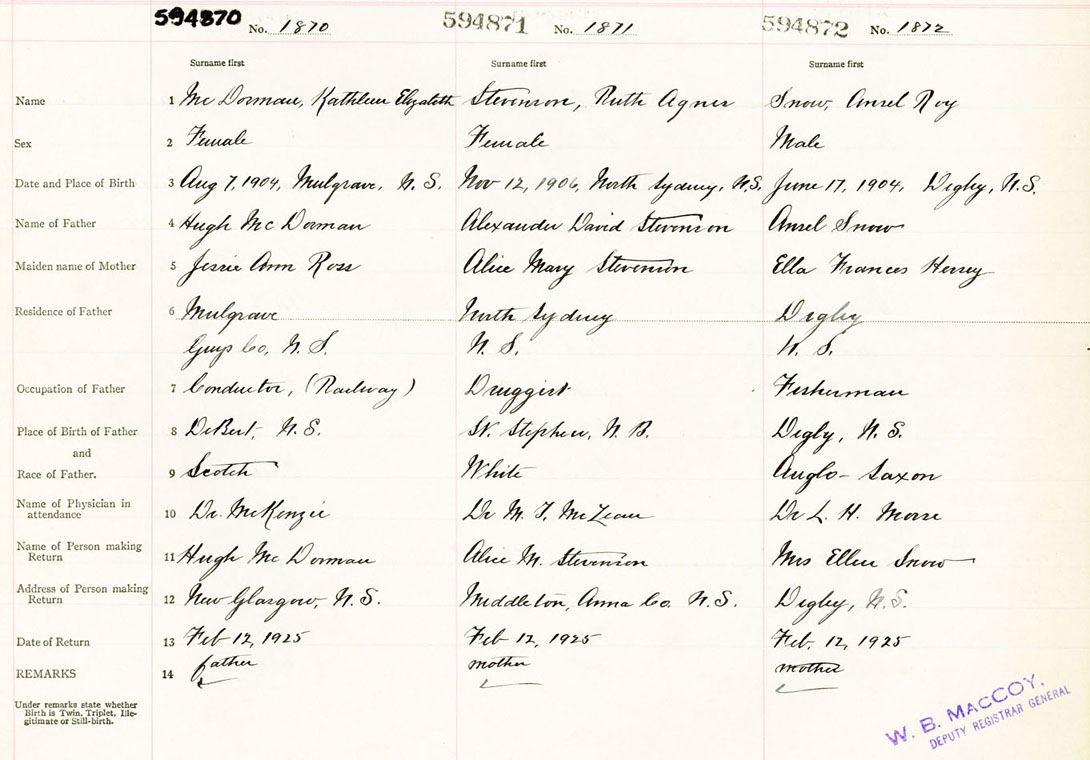 594870 No. 1870 594871 No. 1871 594872 No. 1872
Surname first Surname first Surname first
Name 1 Mc Dorman, Kathleen Elizabeth Stevenson, Ruth Agnes Snow, Ansel Roy
Sex 2 Female Female Male
Date and Place of Birth 3 Aug 7, 1904, Mulgrave, N.S. Nov 12, 1906, North Sydney, N.S. June 17, 1904, Digby, N.S.
Name of Father 4 Hugh Mc Dorman Alexander David Stevenson Ansel Snow
Maiden name of Mother 5 Jessie Ann Ross Alice Mary Stevenson Ella Frances Hersey
Residence of Father 6 Mulgrave North Sydney Digby
Guys Co, N.S. N.S. N.S.
Occupation of Father 7 Conductor, (Railway) Druggist Fisherman
Place of Birth of Father 8 DeBert, N.S. St. Stephen, N.B. Digby, N.S.
and
Race of Father. 9 Scotch White Anglo-Saxon
Name of Physician in
attendance 10 Dr. McKenzie Dr M. T. McLean Dr L. H. Morse
Name of Person making
Return 11 Hugh Mc Dorman Alice M. Stevenson Mrs Ellen Snow
Address of Person making
Return 12 New Glasgow, N.S. Middleton, Anna Co. N.S. Digby, N.S.
Date of Return 13 Feb 12, 1925 Feb 12, 1925 Feb. 12, 1925
REMARKS 14 father mother mother
Under remarks state whether
Birth is Twin, Triplet, Ille-
gitimate or Still-birth.
W. B. MACCOY.
DEPUTY REGISTRAR GENERAL